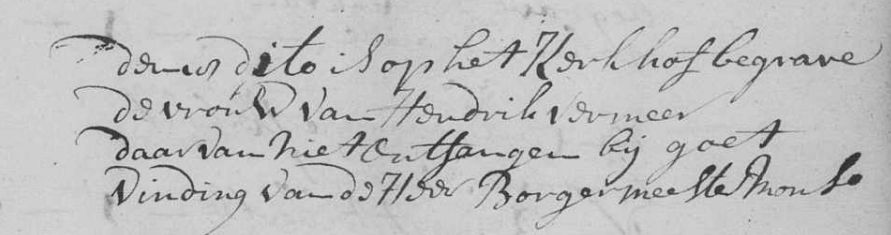 den 18 dito is op het Kerkhof begrave
de vrouw van Hendrik vermeer
daar van niet ontfangen bij goet
vinding van de Heer Borgermeester